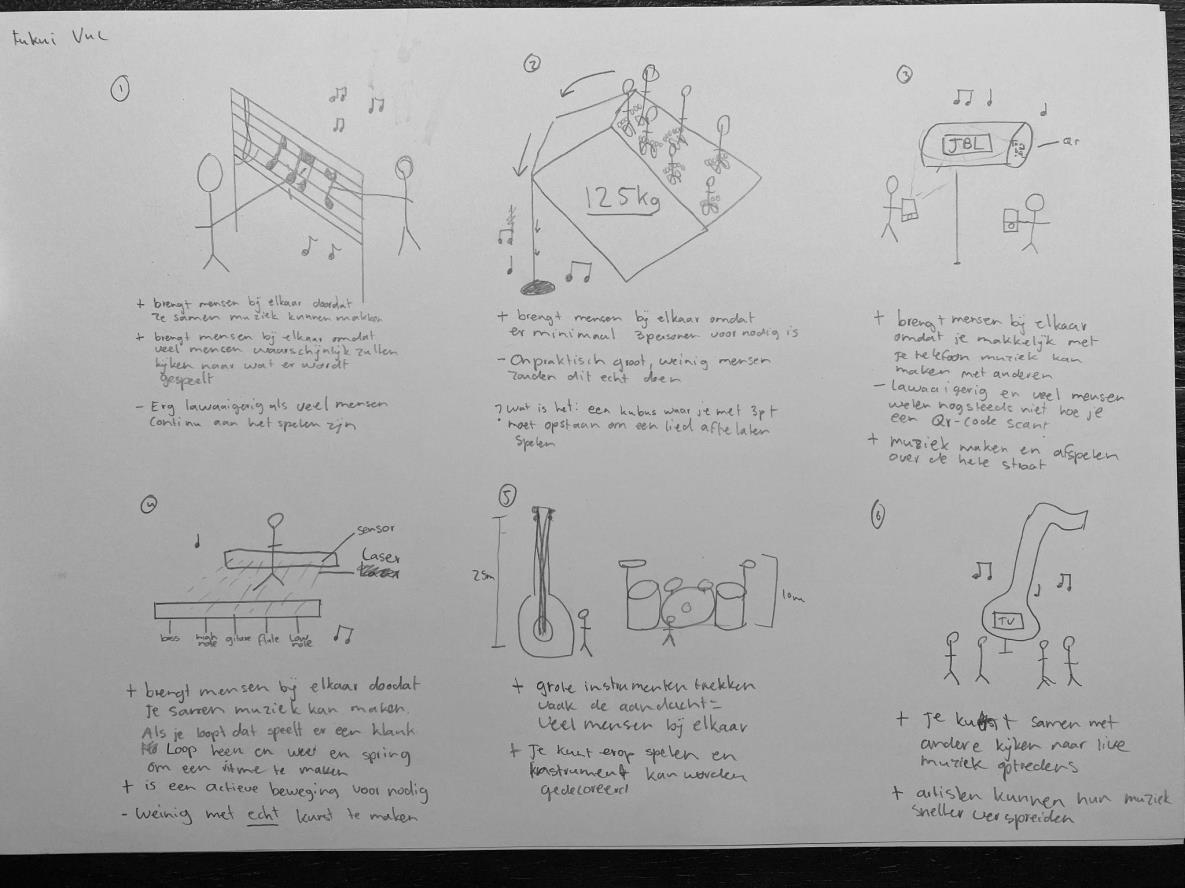 Fukui Vuc
1
+ brengt mensen bij elkaar doordat
ze samen muziek kunnen maken
+ brengt mensen bij elkaar omdat
veel mensen waarschijnlijk zullen
kijken naar wat er wordt
gespeelt
- Erg lawaaigerig als veel mensen
continu aan het spelen zijn
2
125kg
+ brengt mensen bij elkaar omdat
er minimaal 3personen voor nodig is
- Onpraktisch groot, weinig mensen
zouden dit echt doen
? wat is het: een kubus waar je met 3pt
moet opstaan om een lied af te laten
spelen
3
JBL
Qr
+ brengt mensen bij elkaar
omdat je makkelijk met
je telefoon muziek kan
maken met anderen
- lawaaigerig en veel mensen
weten nogsteeds niet hoe je
een Qr-code scant
+ muziek maken en afspelen
over de hele straat
4
sensor
Laser
bass
high note
gitaar
flute
Low note
+ brengt mensen bij elkaar doodat
Je samen muziek kan maken.
Als je loopt dat speelt er een klank
Loop heen en weer en spring
om een ritme te maken
+ is een actieve beweging voor nodig
- weinig met echt kunst te maken
5
25m
10m
+ grote instrumenten trekken
vaak de aandacht =
veel mensen bij elkaar
+ Je kunt erop spelen en
instrument kan worden
gedecoreerd
6
TV
+ Je kunt samen met
andere kijken naar live
muziek optredens
+ artisten kunnen hun muziek
sneller verspreiden